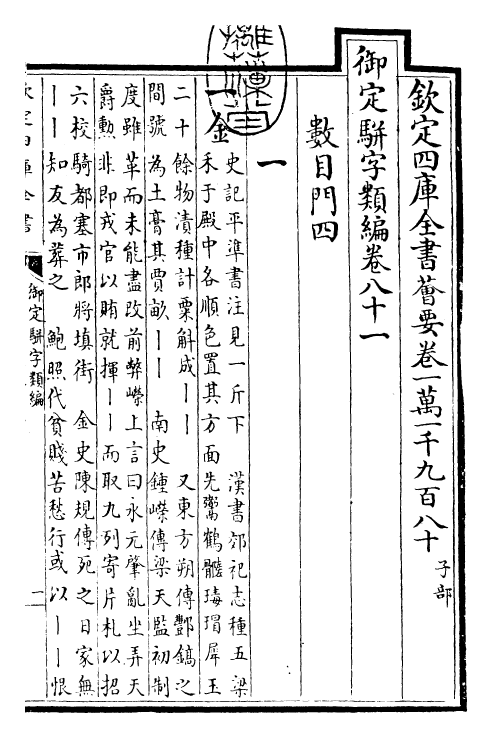 欽定四庫全書薈要卷一萬一千九百八十 子部
御定駢字類編卷八十一
數目門四
一
一金 史記平準書注見一斤下 漢書郊祀志種五梁
禾于殿中各順色置其方面先鬻鶴髓瑇瑁犀玉
二十餘物漬種計粟斛成一一 又東方朔傳酆鎬之
間號為土膏其賈畝一一 南史鍾嶸傳梁天監初制
度雖革而未能盡改前弊嶸上言曰永元肇亂坐弄天
爵勲非即戎官以賄就揮一一而取九列寄片札以招
六校騎都塞市郎將填街 金史陳規傳死之日家無
一一知友為葬之 鮑照代貧賤苦愁行或以一一恨
欽定四庫全書
御定駢字類編